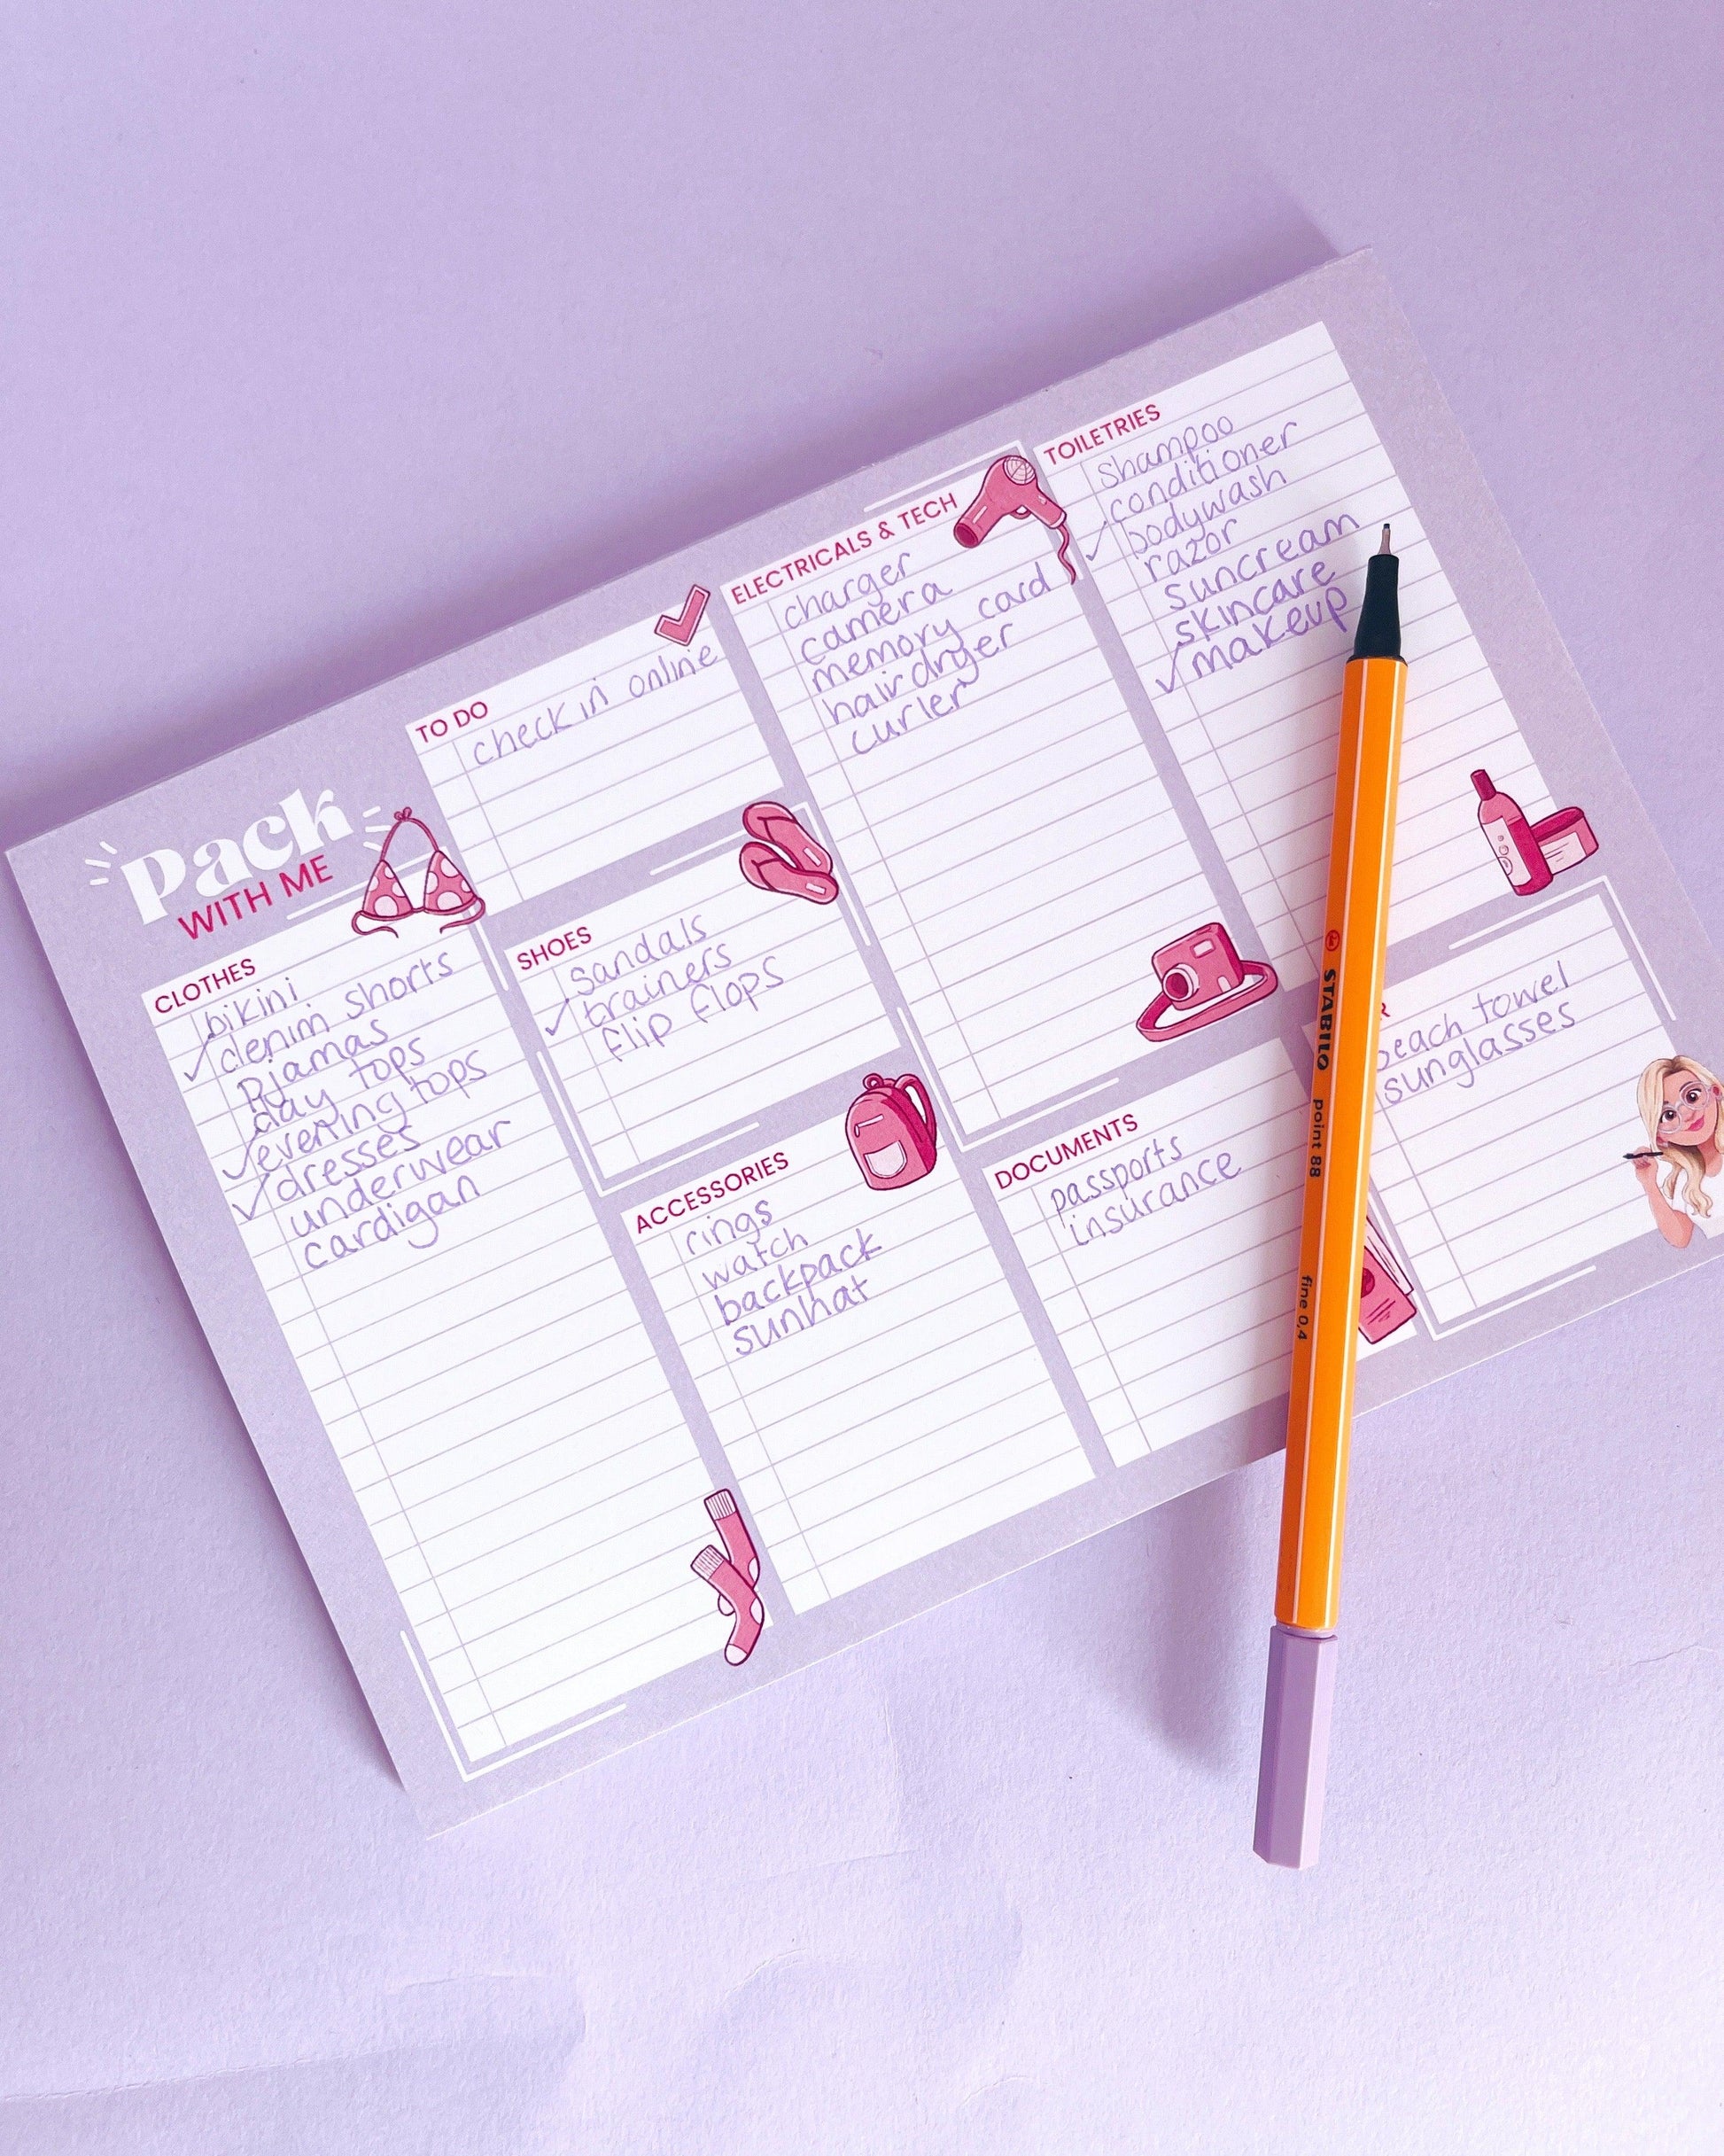 Pack
WITH ME
CLOTHES
bikini
✓ denim shorts
Pjamas
day tops
✓ evening tops
✓ dresses
underwear
cardigan
TO DO
check in online
SHOES
sandals
✓ trainers
flip flops
ACCESSORIES
rings
watch
backpack
sunhat
ELECTRICALS & TECH
charger
camera
memory card
hair dryer
curler
DOCUMENTS
passports
insurance
TOILETRIES
Shampoo
conditioner
✓ bodywash
razor
suncream
skincare
✓ makeup
R
beach towel
sunglasses
STABILO point 88 fine 0,4